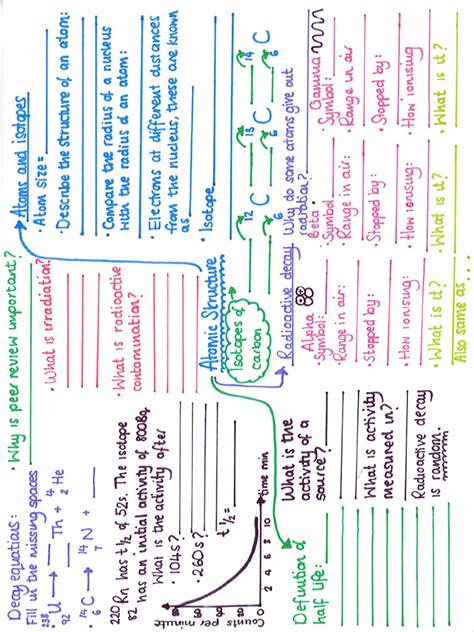 Decay equations:
Fill in the missing spaces
238 U → Th + 4 He
92 2
14 C → 14 N +
6 7
220 Rn has t½ of 52s. The isotope
82 has an initial activity of 800Bq.
What is the activity after
• 104s?
• 260s?
t ½ =
Counts per minute
80
60
40
20
0
2 4 6 8 10
time min
Definition of
half life:
• Why is peer review important?
• What is irradiation?
• What is radioactive
contamination?
Atomic Structure
Isotopes of
carbon
12 C 13 C 14 C
6 6 6
Atoms and isotopes
• Atom size =
• Describe the structure of an atom:
• Compare the radius of a nucleus
with the radius of an atom:
• Electrons at different distances
from the nucleus, these are known
as
• Isotope
Radioactive decay
Why do some atoms give out
radiation?
What is the
activity of a
source?
What is activity
measured in?
Radioactive decay
is random.
Alpha
• Symbol:
• Range in air:
• Stopped by:
• How ionising:
• What is it?
Also same as ...
Beta
• Symbol
• Range in air:
• Stopped by:
• How ionising:
• What is it?
Gamma
Symbol:
• Range in air:
• Stopped by:
• How ionising
• What is it?